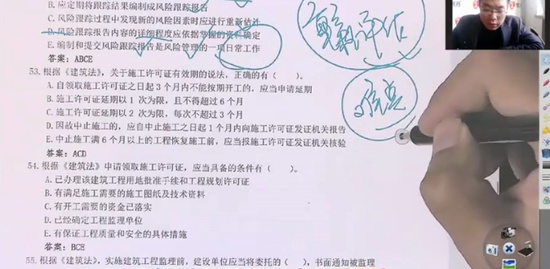 B. 应定期将跟踪结果编制成风险跟踪报告
C. 风险跟踪过程中发现新的风险因素时应进行重新估计
D. 风险跟踪报告内容的详细程度应依据掌握的资料确定
E. 编制和提交风险跟踪报告是风险管理的一项日常工作
答案：ABCE
53. 根据《建筑法》，关于施工许可证有效期的说法，正确的有（ ）。
A. 自领取施工许可证之日起 3 个月内不能按期开工的，应当申请延期
B. 施工许可证延期以 1 次为限，且不得超过 6 个月
C. 施工许可证延期以 2 次为限，每次不超过 3 个月
D. 因故中止施工的，应自中止施工之日起 1 个月内向施工许可证发证机关报告
E. 中止施工满 6 个月以上的工程恢复施工前，应当报施工许可证发证机关核验
答案：ACD
54. 根据《建筑法》申请领取施工许可证，应当具备的条件有（ ）。
A. 已办理该建筑工程用地批准手续和工程规划许可证
B. 有满足施工需要的施工图纸及技术资料
C. 有开工需要的资金已落实
D. 已经确定工程监理单位
E. 有保证工程质量和安全的具体措施
答案：BCE
55. 根据《建筑法》，实施建筑工程监理前，建设单位应当将委托的（ ），书面通知被监理